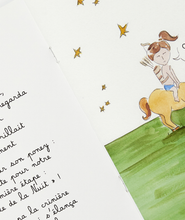 regarda
rillait
ment
er son poney
te pour notre
mière étape :
e de la Nuit » !
ra la crinière
s'élança